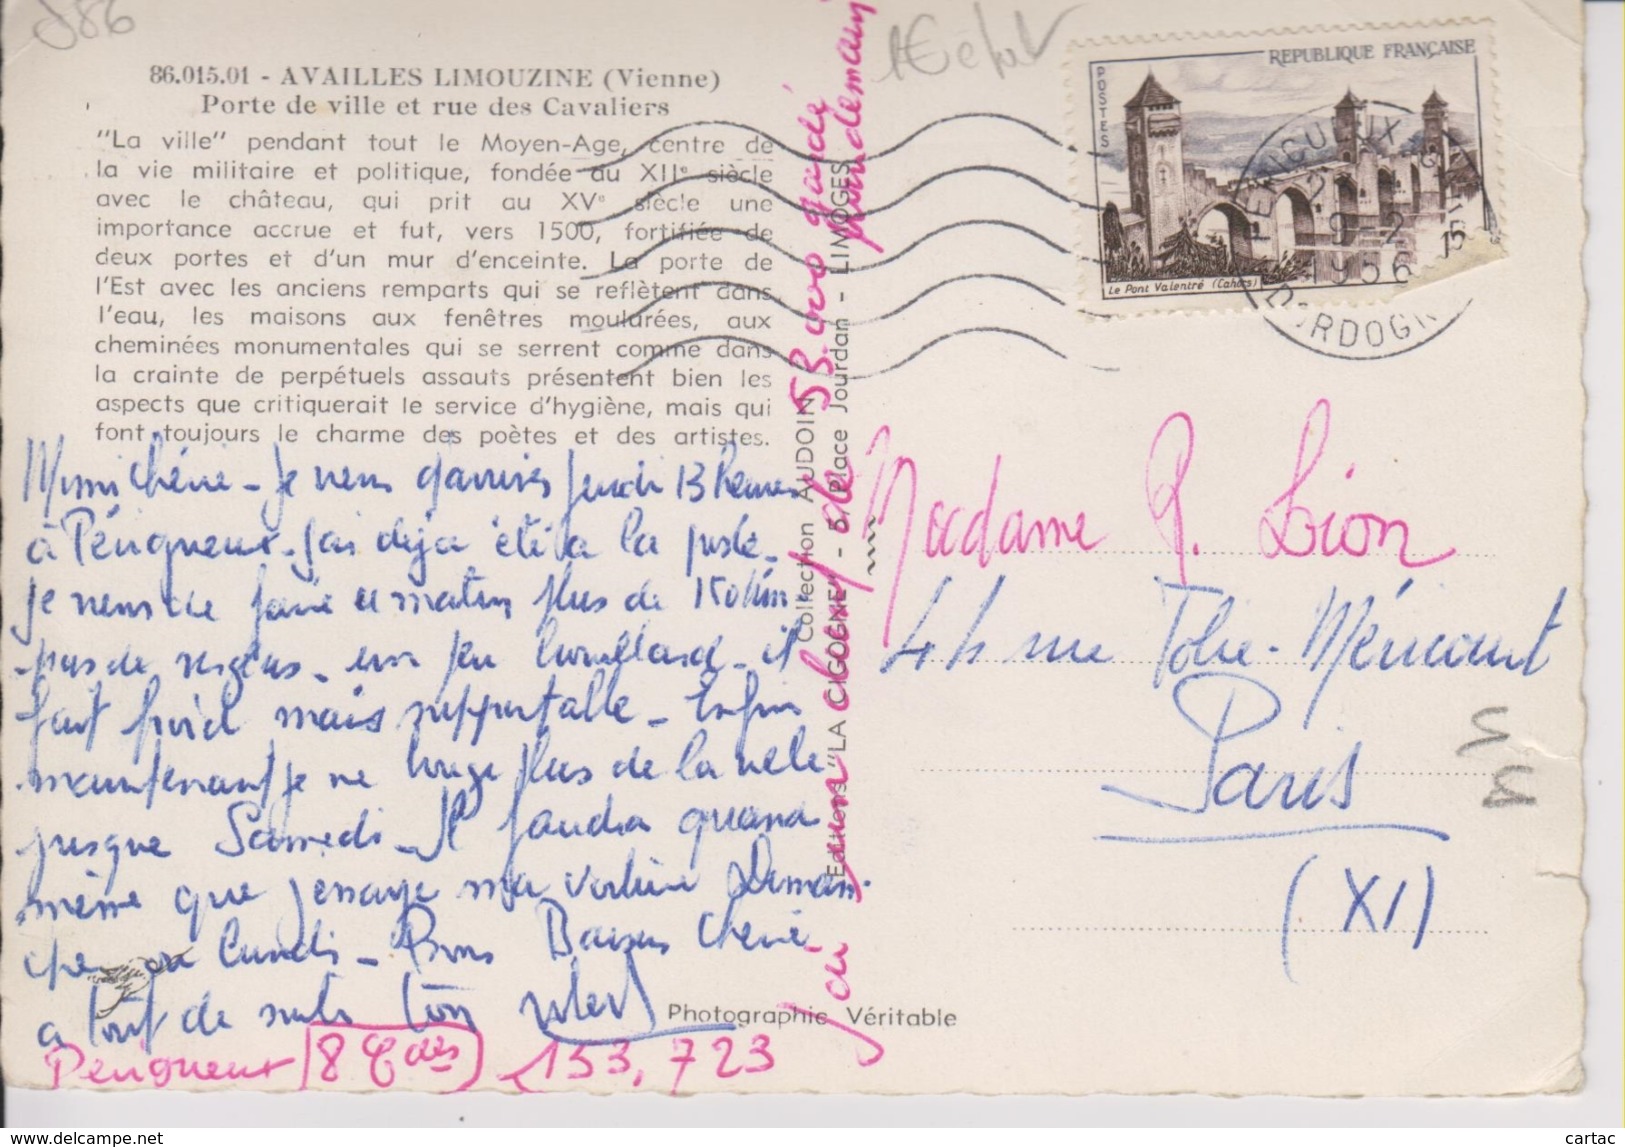 J86
86.015.01 - AVAILLES LIMOUZINE (Vienne)
Porte de ville et rue des Cavaliers
"La ville" pendant tout le Moyen-Age, centre de
la vie militaire et politique, fondée au XIIe siècle
avec le château, qui prit au XVe siècle une
importance accrue et fut, vers 1500, fortifiée de
deux portes et d'un mur d'enceinte. La porte de
l'Est avec les anciens remparts qui se reflètent dans
l'eau, les maisons aux fenêtres moulurées, aux
cheminées monumentales qui se serrent comme dans
la crainte de perpétuels assauts présentent bien les
aspects que critiquerait le service d'hygiène, mais qui
font toujours le charme des poètes et des artistes.
Mimi Chérie - je viens d'arriver jeudi 13 heures
à Périgueux - j'ai déjà été à la poste -
je viens de faire ce matin plus de 150 Km
pas de - un peu - il
fait froid mais supportable - Enfin
maintenant je ne bouge plus de la ville
jusque Samedi - Il faudra quand
même que j'essaye ma voiture Diman-
che ou Lundi - Bons Baisers Chérie
à tout de suite ton
Périgueux 18 133,723
J'ai un cheval de 53.000 gardé
pour demain
Collection AUDOIN
Editions "LA CIGOGNE" - 5, Place Jourdan - LIMOGES
Photographie Véritable
REPUBLIQUE FRANÇAISE
POSTES
15F
Le Pont Valentré (Cahors)
PERIGUEUX
9-2
1956
DORDOGNE
Madame P. Lion
44 rue Folie-Méricourt
Paris
(XI)
cartac